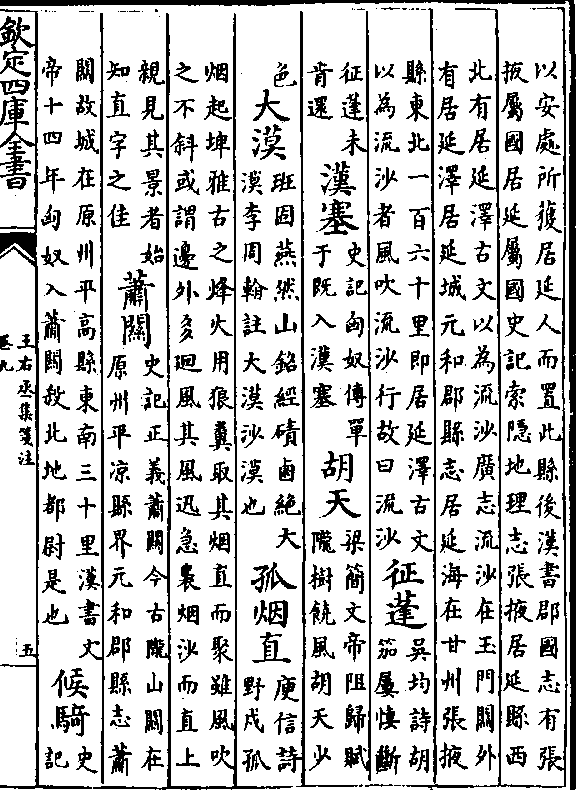 以安處所獲居延人而置此縣後漢書郡國志有張
掖屬國居延屬國史記索隱地理志張掖居延縣西
北有居延澤古文以為流沙廣志流沙在玉門關外
有居延澤居延城元和郡縣志居延海在甘州張掖
縣東北一百六十里即居延澤古文
以為流沙者風吹流沙行故曰流沙
征蓬
吳均詩胡
笳屢悽斷
征蓬未
肯還
漢塞
史記匈奴傳單
于既入漢塞
胡天
梁簡文帝阻歸賦
隴樹饒風胡天少
色
大漠
班固燕然山銘經磧鹵絶大
漠李周翰註大漠沙漠也
孤烟直
庾信詩
野戍孤
烟起埤雅古之烽火用狼糞取其烟直而聚雖風吹
之不斜或謂邊外多迴風其風迅急裊烟沙而直上
親見其景者始
知直字之佳
蕭關
史記正義蕭關今古隴山關在
原州平涼縣界元和郡縣志蕭
關故城在原州平高縣東南三十里漢書文
帝十四年匈奴入蕭關殺北地都尉是也
候騎
史
記
欽定四庫全書
王右丞集箋注
卷九
五